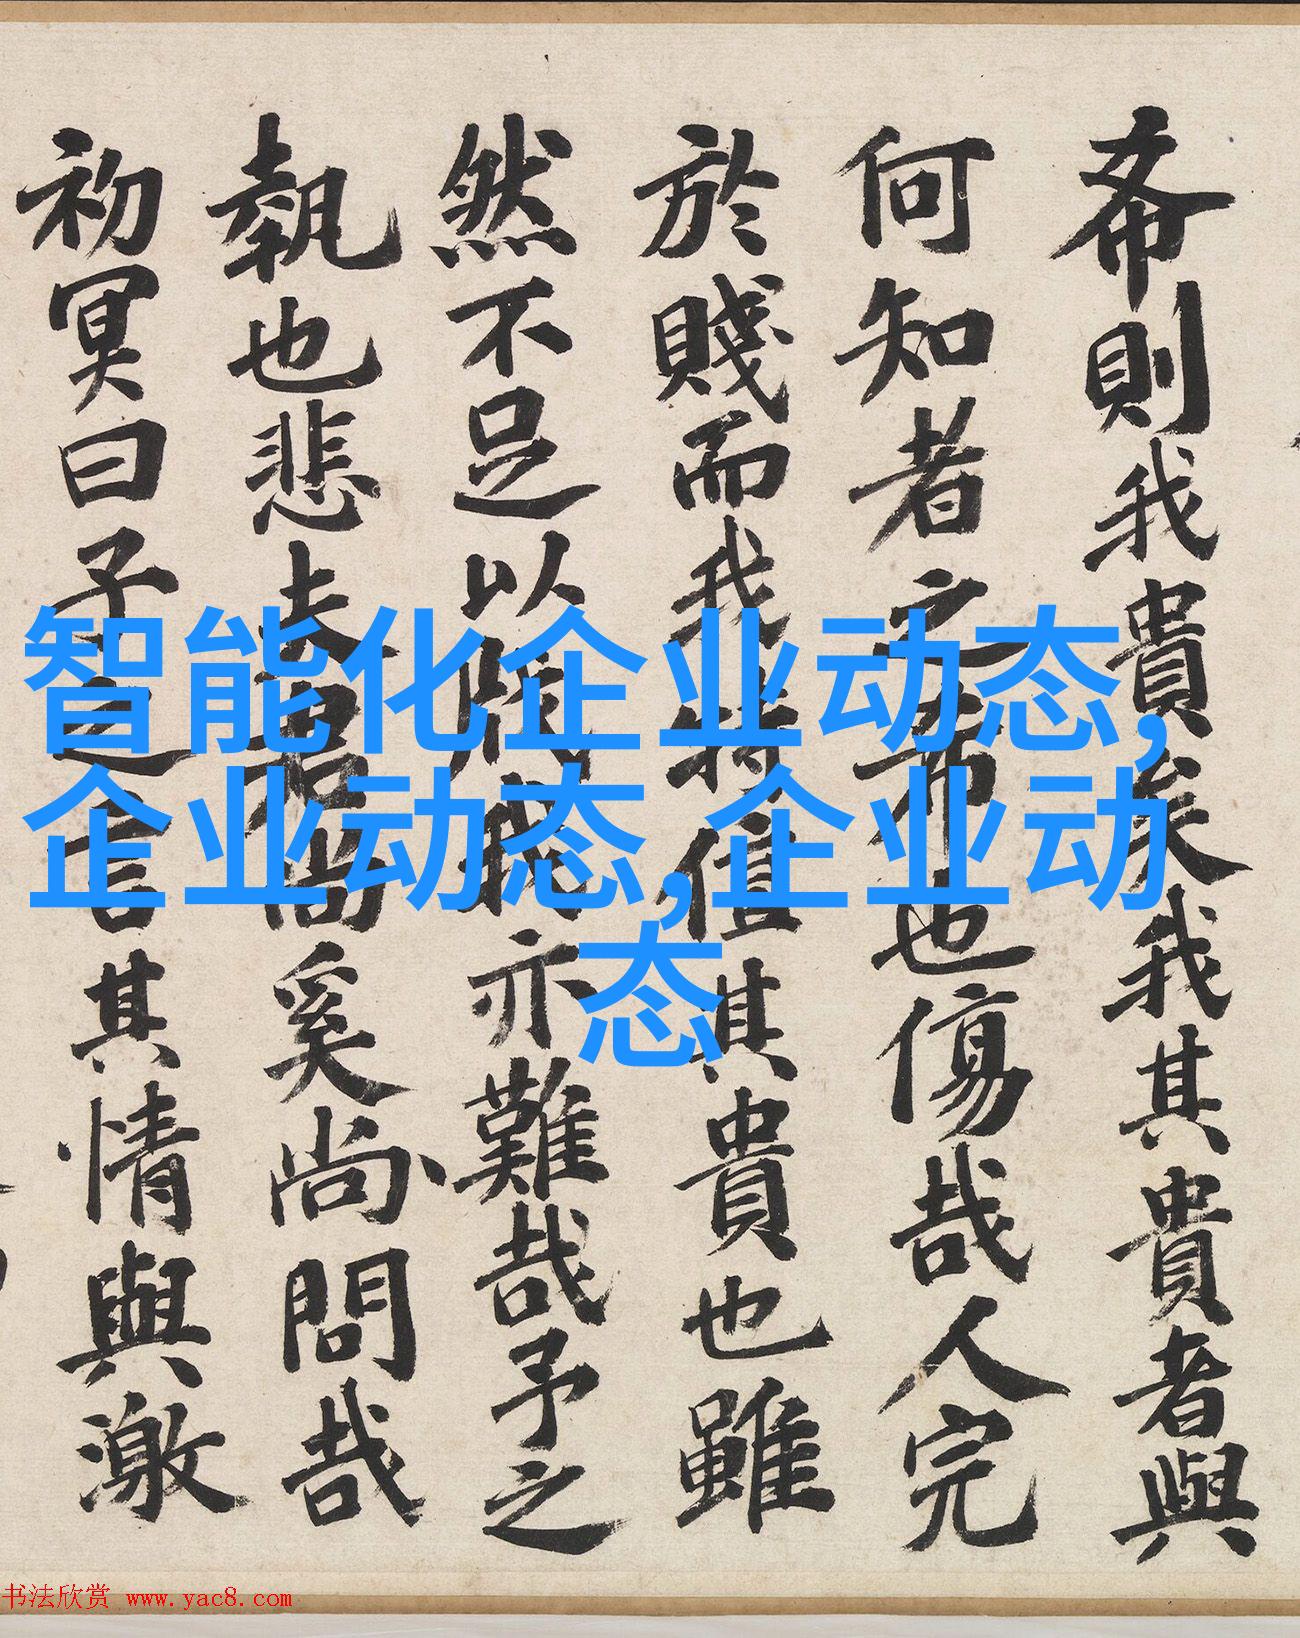 希則我貴矣我其貴者與
何知者之希也傷哉人完
於賤而我特值其貴也雖
然不足以我亦難哉予之
執也悲夫君尚奚尚問哉
初冥曰子之言其情與激
智能化企业动态,
企业动态,企业动
态
书法欣赏 www.yac8.com